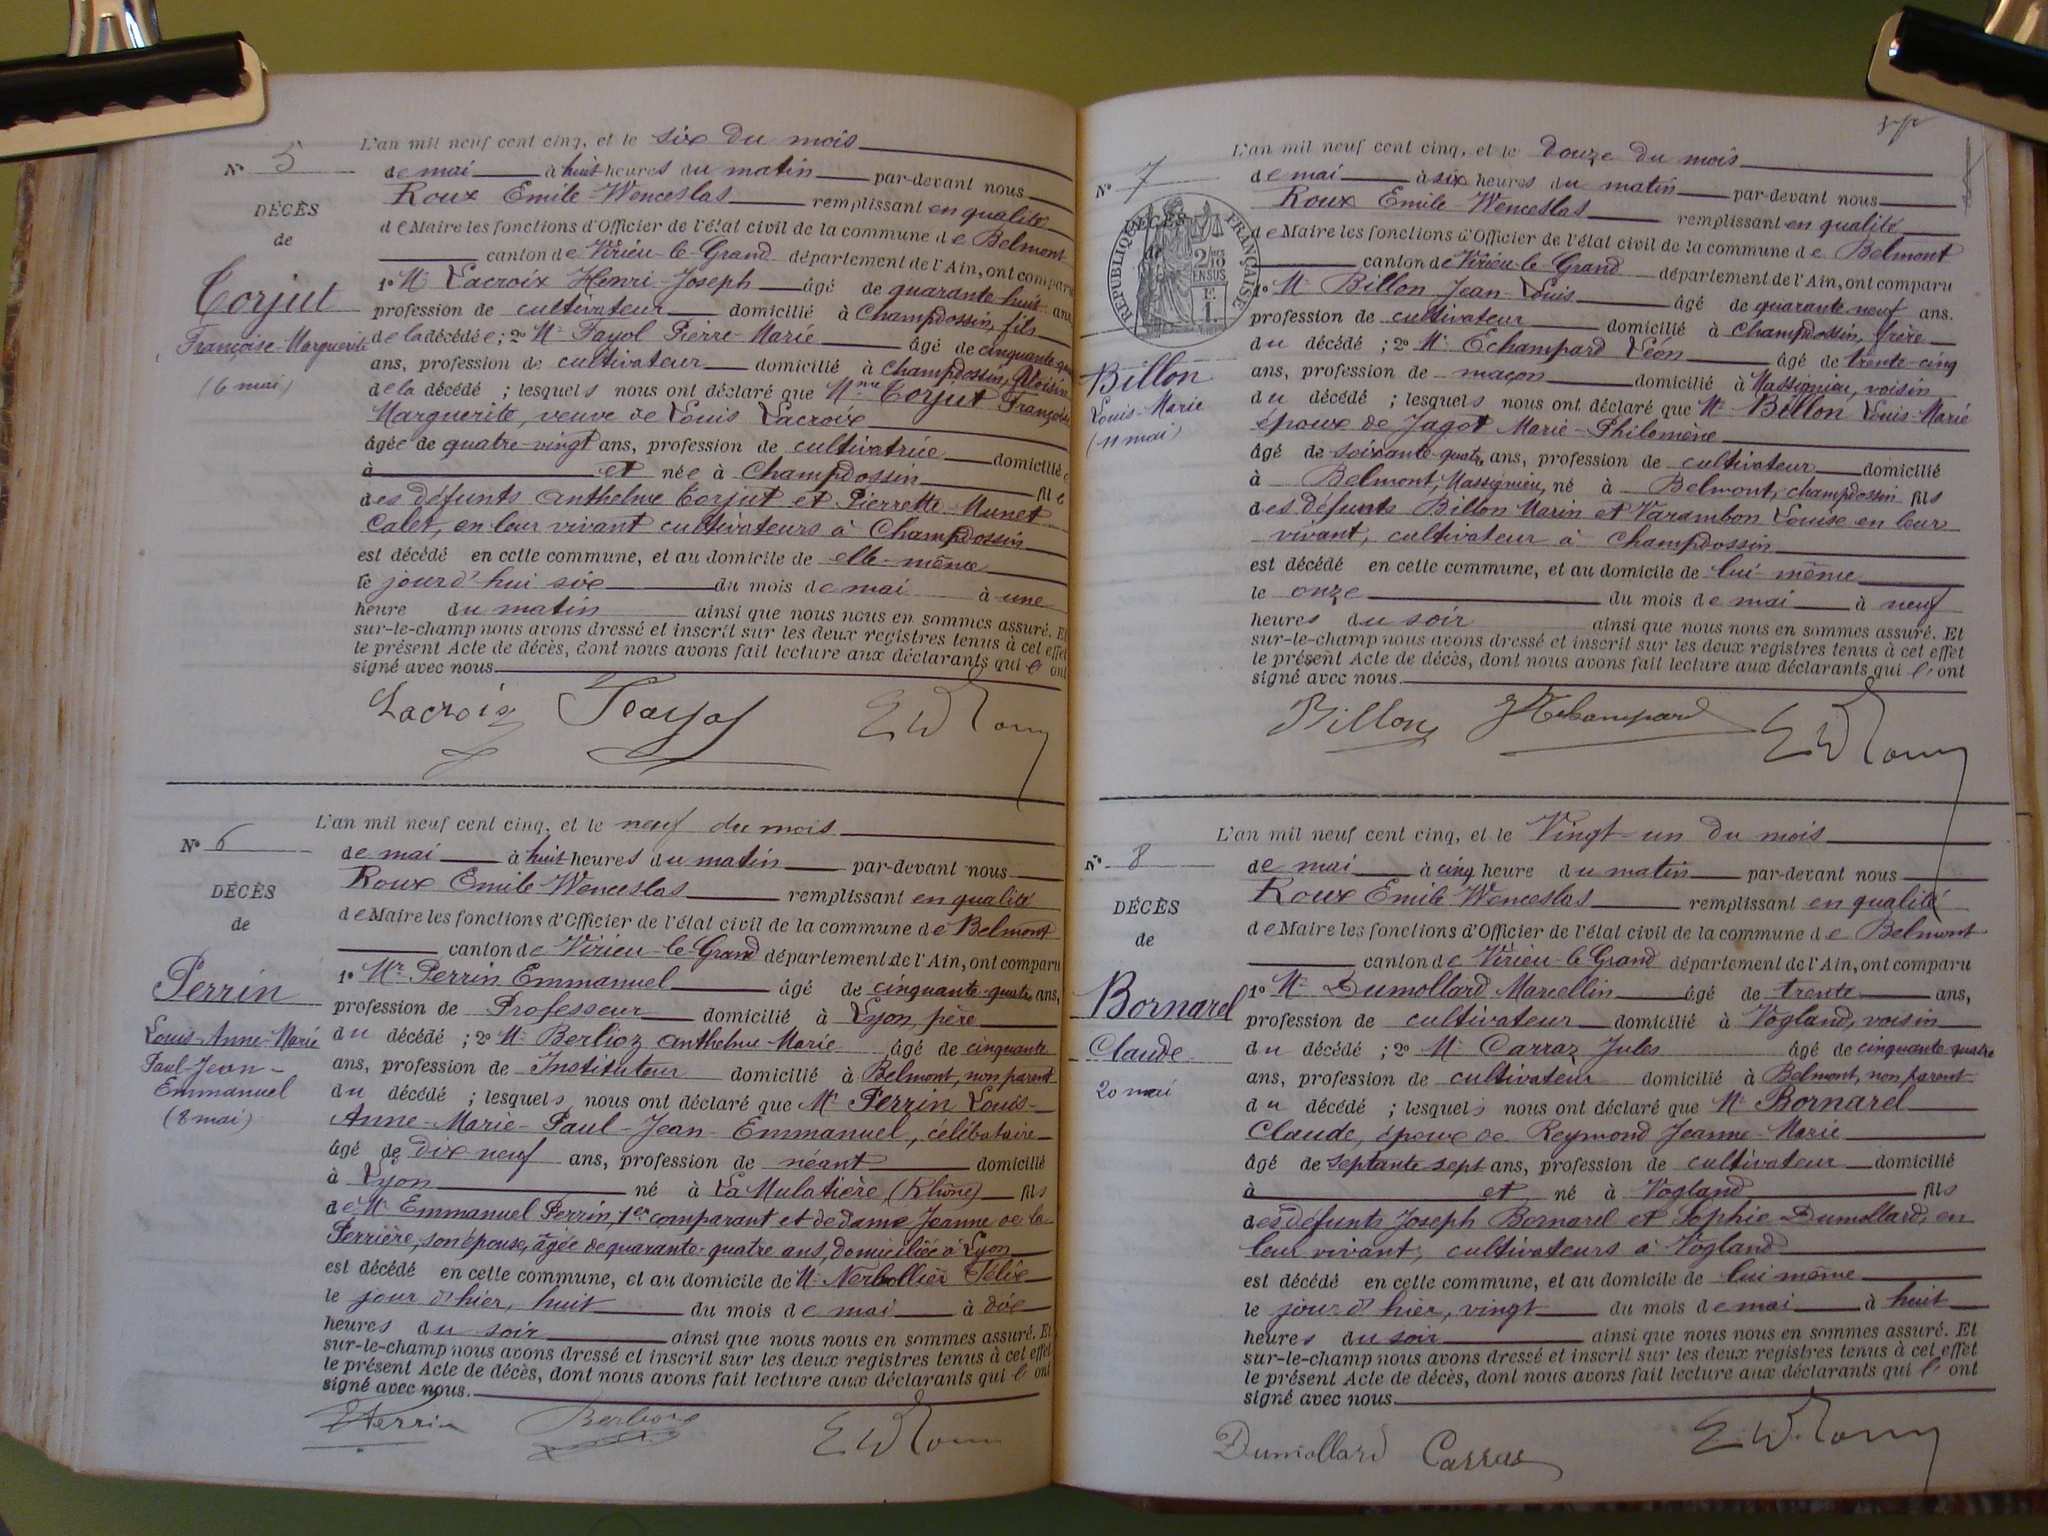 L'an mil neuf cent cinq, et le six du mois
N° 5
de mai à huit heures du matin par-devant nous
Roux Emile Wenceslas remplissant en qualité
DÉCÈS
de Maire les fonctions d'Officier de l'état civil de la commune de Belmont
de
canton de Virieu-le-Grand département de l'Ain, ont comparu
Torjut
1° Mr Lacroix Henri-Joseph âgé de quarante huit ans,
profession de cultivateur domicilié à Champdossin, fils
Françoise-Marguerite
de la décédée ; 2° Mr Fayol Pierre-Marie âgé de cinquante
ans, profession de cultivateur domicilié à Champdossin, voisin
(6 mai)
de la décédé ; lesquels nous ont déclaré que Mme Torjut Françoise
Marguerite, veuve de Louis Lacroix
âgée de quatre-vingt ans, profession de cultivatrice domicilié
à et née à Champdossin fil e
des défunts Anthelme Torjut et Pierrette Munet
Calet, en leur vivant cultivateurs à Champdossin
est décédé en cette commune, et au domicile de elle-même
le jourd'hui six du mois de mai à une
heure du matin ainsi que nous nous en sommes assuré. Et
sur-le-champ nous avons dressé et inscrit sur les deux registres tenus à cet effet
le présent Acte de décès, dont nous avons fait lecture aux déclarants qui l'ont
signé avec nous.
Lacroix Fayol E W Roux
L'an mil neuf cent cinq, et le neuf du mois
N° 6
de mai à huit heures du matin par-devant nous
Roux Emile Wenceslas remplissant en qualité
DÉCÈS
de Maire les fonctions d'Officier de l'état civil de la commune de Belmont
de
canton de Virieu-le-Grand département de l'Ain, ont comparu
Perrin
1° Mr Perrin Emmanuel âgé de cinquante-quatre ans,
profession de Professeur domicilié à Lyon, père
Louis-Anne-Marie
du décédé ; 2° Mr Berlioz Anthelme-Marie âgé de cinquante
Paul-Jean-
ans, profession de Instituteur domicilié à Belmont, non parent
Emmanuel
du décédé ; lesquels nous ont déclaré que Mr Perrin Louis-
(8 mai)
Anne-Marie-Paul-Jean-Emmanuel, célibataire
âgé de dix neuf ans, profession de néant domicilié
à Lyon né à La Mulatière, (Rhône) fils
de Mr Emmanuel Perrin, 1er comparant et de dame Jeanne de la
Perrière, son épouse, âgée de quarante-quatre ans, domiciliée à Lyon
est décédé en cette commune, et au domicile de Mr Nerbollier Félix
le jour d'hier, huit du mois de mai à dix
heures du soir ainsi que nous nous en sommes assuré. Et
sur-le-champ nous avons dressé et inscrit sur les deux registres tenus à cet effet
le présent Acte de décès, dont nous avons fait lecture aux déclarants qui l'ont
signé avec nous.
Perrin Berlioz E W Roux
L'an mil neuf cent cinq, et le douze du mois
N° 7
de mai à six heures du matin par-devant nous
Roux Emile Wenceslas remplissant en qualité
DÉCÈS
de
RÉPUBLIQUE FRANÇAISE
2/10 EN SUS
de Maire les fonctions d'Officier de l'état civil de la commune de Belmont
canton de Virieu-le-Grand département de l'Ain, ont comparu
1° Mr Billon Jean-Louis âgé de quarante neuf ans.
profession de cultivateur domicilié à Champdossin, frère
du décédé ; 2° Mr Echampard Léon âgé de trente-cinq
Billon
ans, profession de maçon domicilié à Massignieu, voisin
Louis-Marie
du décédé ; lesquels nous ont déclaré que Mr Billon Louis-Marie
(11 mai)
époux de Jagot Marie-Philomène
âgé de soixante-quatre ans, profession de cultivateur domicilié
à Belmont, Massignieu, né à Belmont, Champdossin fils
des défunts Billon Marin et Varambon Louise en leur
vivant, cultivateur à Champdossin
est décédé en cette commune, et au domicile de lui-même
le onze du mois de mai à neuf
heures du soir ainsi que nous nous en sommes assuré. Et
sur-le-champ nous avons dressé et inscrit sur les deux registres tenus à cet effet
le présent Acte de décès, dont nous avons fait lecture aux déclarants qui l'ont
signé avec nous.
Billon Echampard E W Roux
L'an mil neuf cent cinq, et le Vingt-un du mois
N° 8
de mai à cinq heure du matin par-devant nous
Roux Emile Wenceslas remplissant en qualité
DÉCÈS
de Maire les fonctions d'Officier de l'état civil de la commune de Belmont
de
canton de Virieu-le-Grand département de l'Ain, ont comparu
Bornarel
1° Mr Dumollard Marcellin âgé de trente ans,
profession de cultivateur domicilié à Vogland, voisin
Claude
du décédé ; 2° Mr Carraz Jules âgé de cinquante-quatre
ans, profession de cultivateur domicilié à Belmont, non parent
20 mai
du décédé ; lesquels nous ont déclaré que Mr Bornarel
Claude, époux de Reymond Jeanne-Marie
âgé de septante sept ans, profession de cultivateur domicilié
à et né à Vogland fils
des défunts Joseph Bornarel et Sophie Dumollard, en
leur vivant, cultivateurs à Vogland
est décédé en cette commune, et au domicile de lui même
le jour d'hier, vingt du mois de mai à huit
heures du soir ainsi que nous nous en sommes assuré. Et
sur-le-champ nous avons dressé et inscrit sur les deux registres tenus à cet effet
le présent Acte de décès, dont nous avons fait lecture aux déclarants qui l'ont
signé avec nous.
Dumollard Carraz E W. Roux